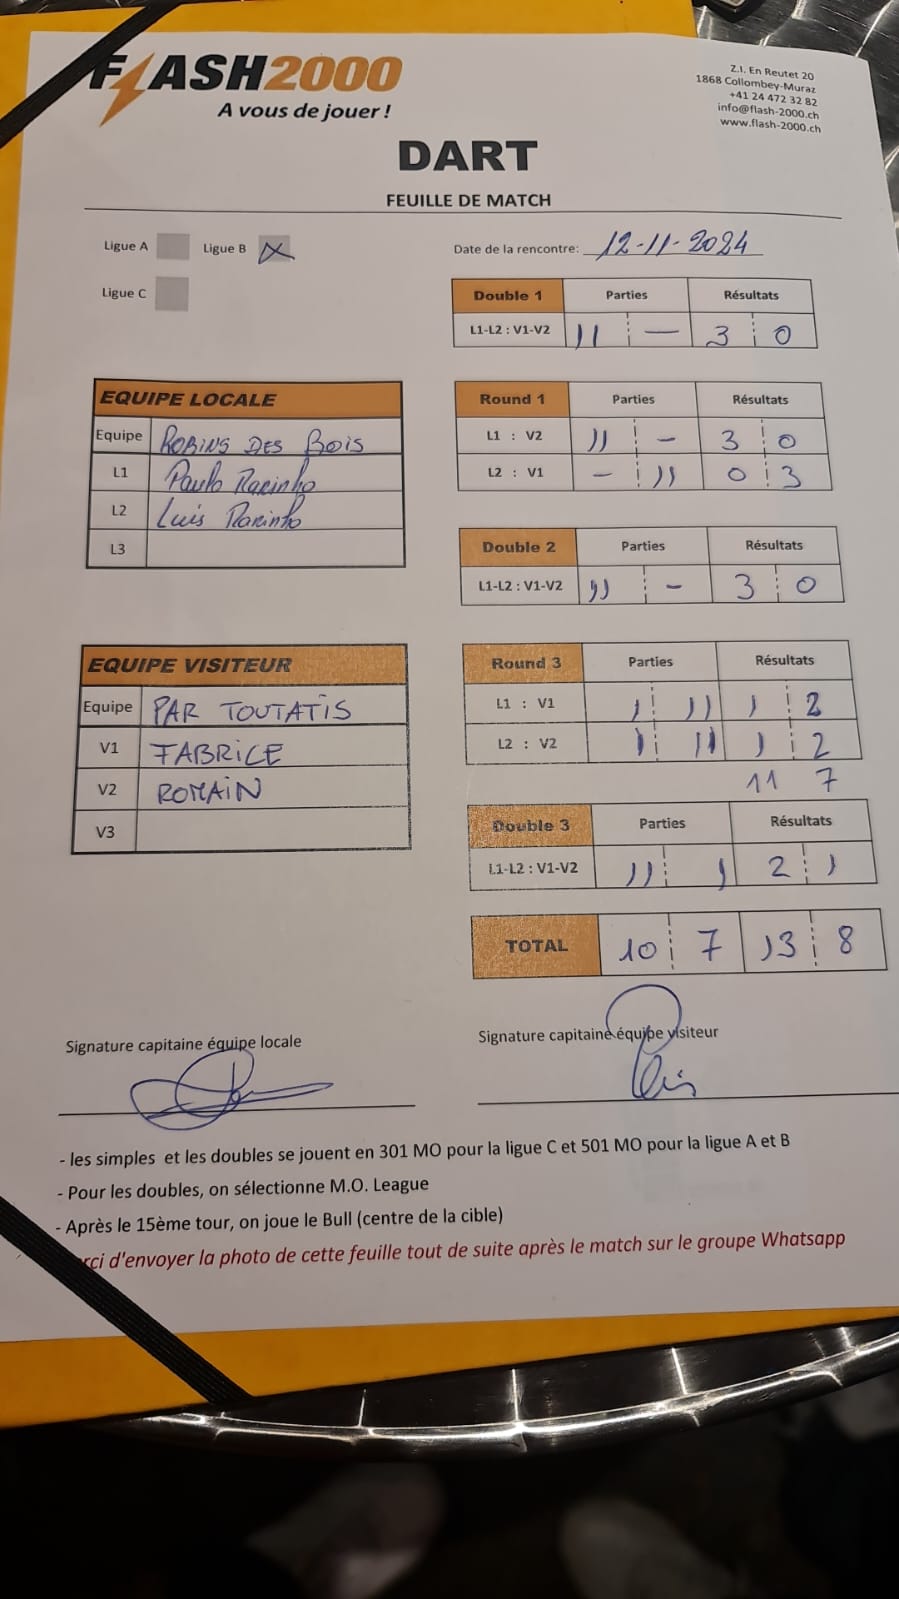 FLASH2000
A vous de jouer !
Z.I. En Reutet 20
1868 Collombey-Muraz
+41 24 472 32 82
info@flash-2000.ch
www.flash-2000.ch
DART
FEUILLE DE MATCH
Ligue A Ligue B X
Ligue C
Date de la rencontre: 12-11-2024
Double 1 Parties Résultats
L1-L2 : V1-V2 11 - 3 0
EQUIPE LOCALE
Equipe ROBINS DES BOIS
L1 Paulo
L2 Luis
L3
Round 1 Parties Résultats
L1 : V2 11 - 3 0
L2 : V1 - 11 0 3
Double 2 Parties Résultats
L1-L2 : V1-V2 11 - 3 0
EQUIPE VISITEUR
Equipe PAR TOUTATIS
V1 FABRICE
V2 ROMAIN
V3
Round 3 Parties Résultats
L1 : V1 1 11 1 2
L2 : V2 1 11 1 2
11 7
Double 3 Parties Résultats
L1-L2 : V1-V2 11 1 2 1
TOTAL 10 7 13 8
Signature capitaine équipe locale
Signature capitaine équipe visiteur
- les simples et les doubles se jouent en 301 MO pour la ligue C et 501 MO pour la ligue A et B
- Pour les doubles, on sélectionne M.O. League
- Après le 15ème tour, on joue le Bull (centre de la cible)
rci d'envoyer la photo de cette feuille tout de suite après le match sur le groupe Whatsapp